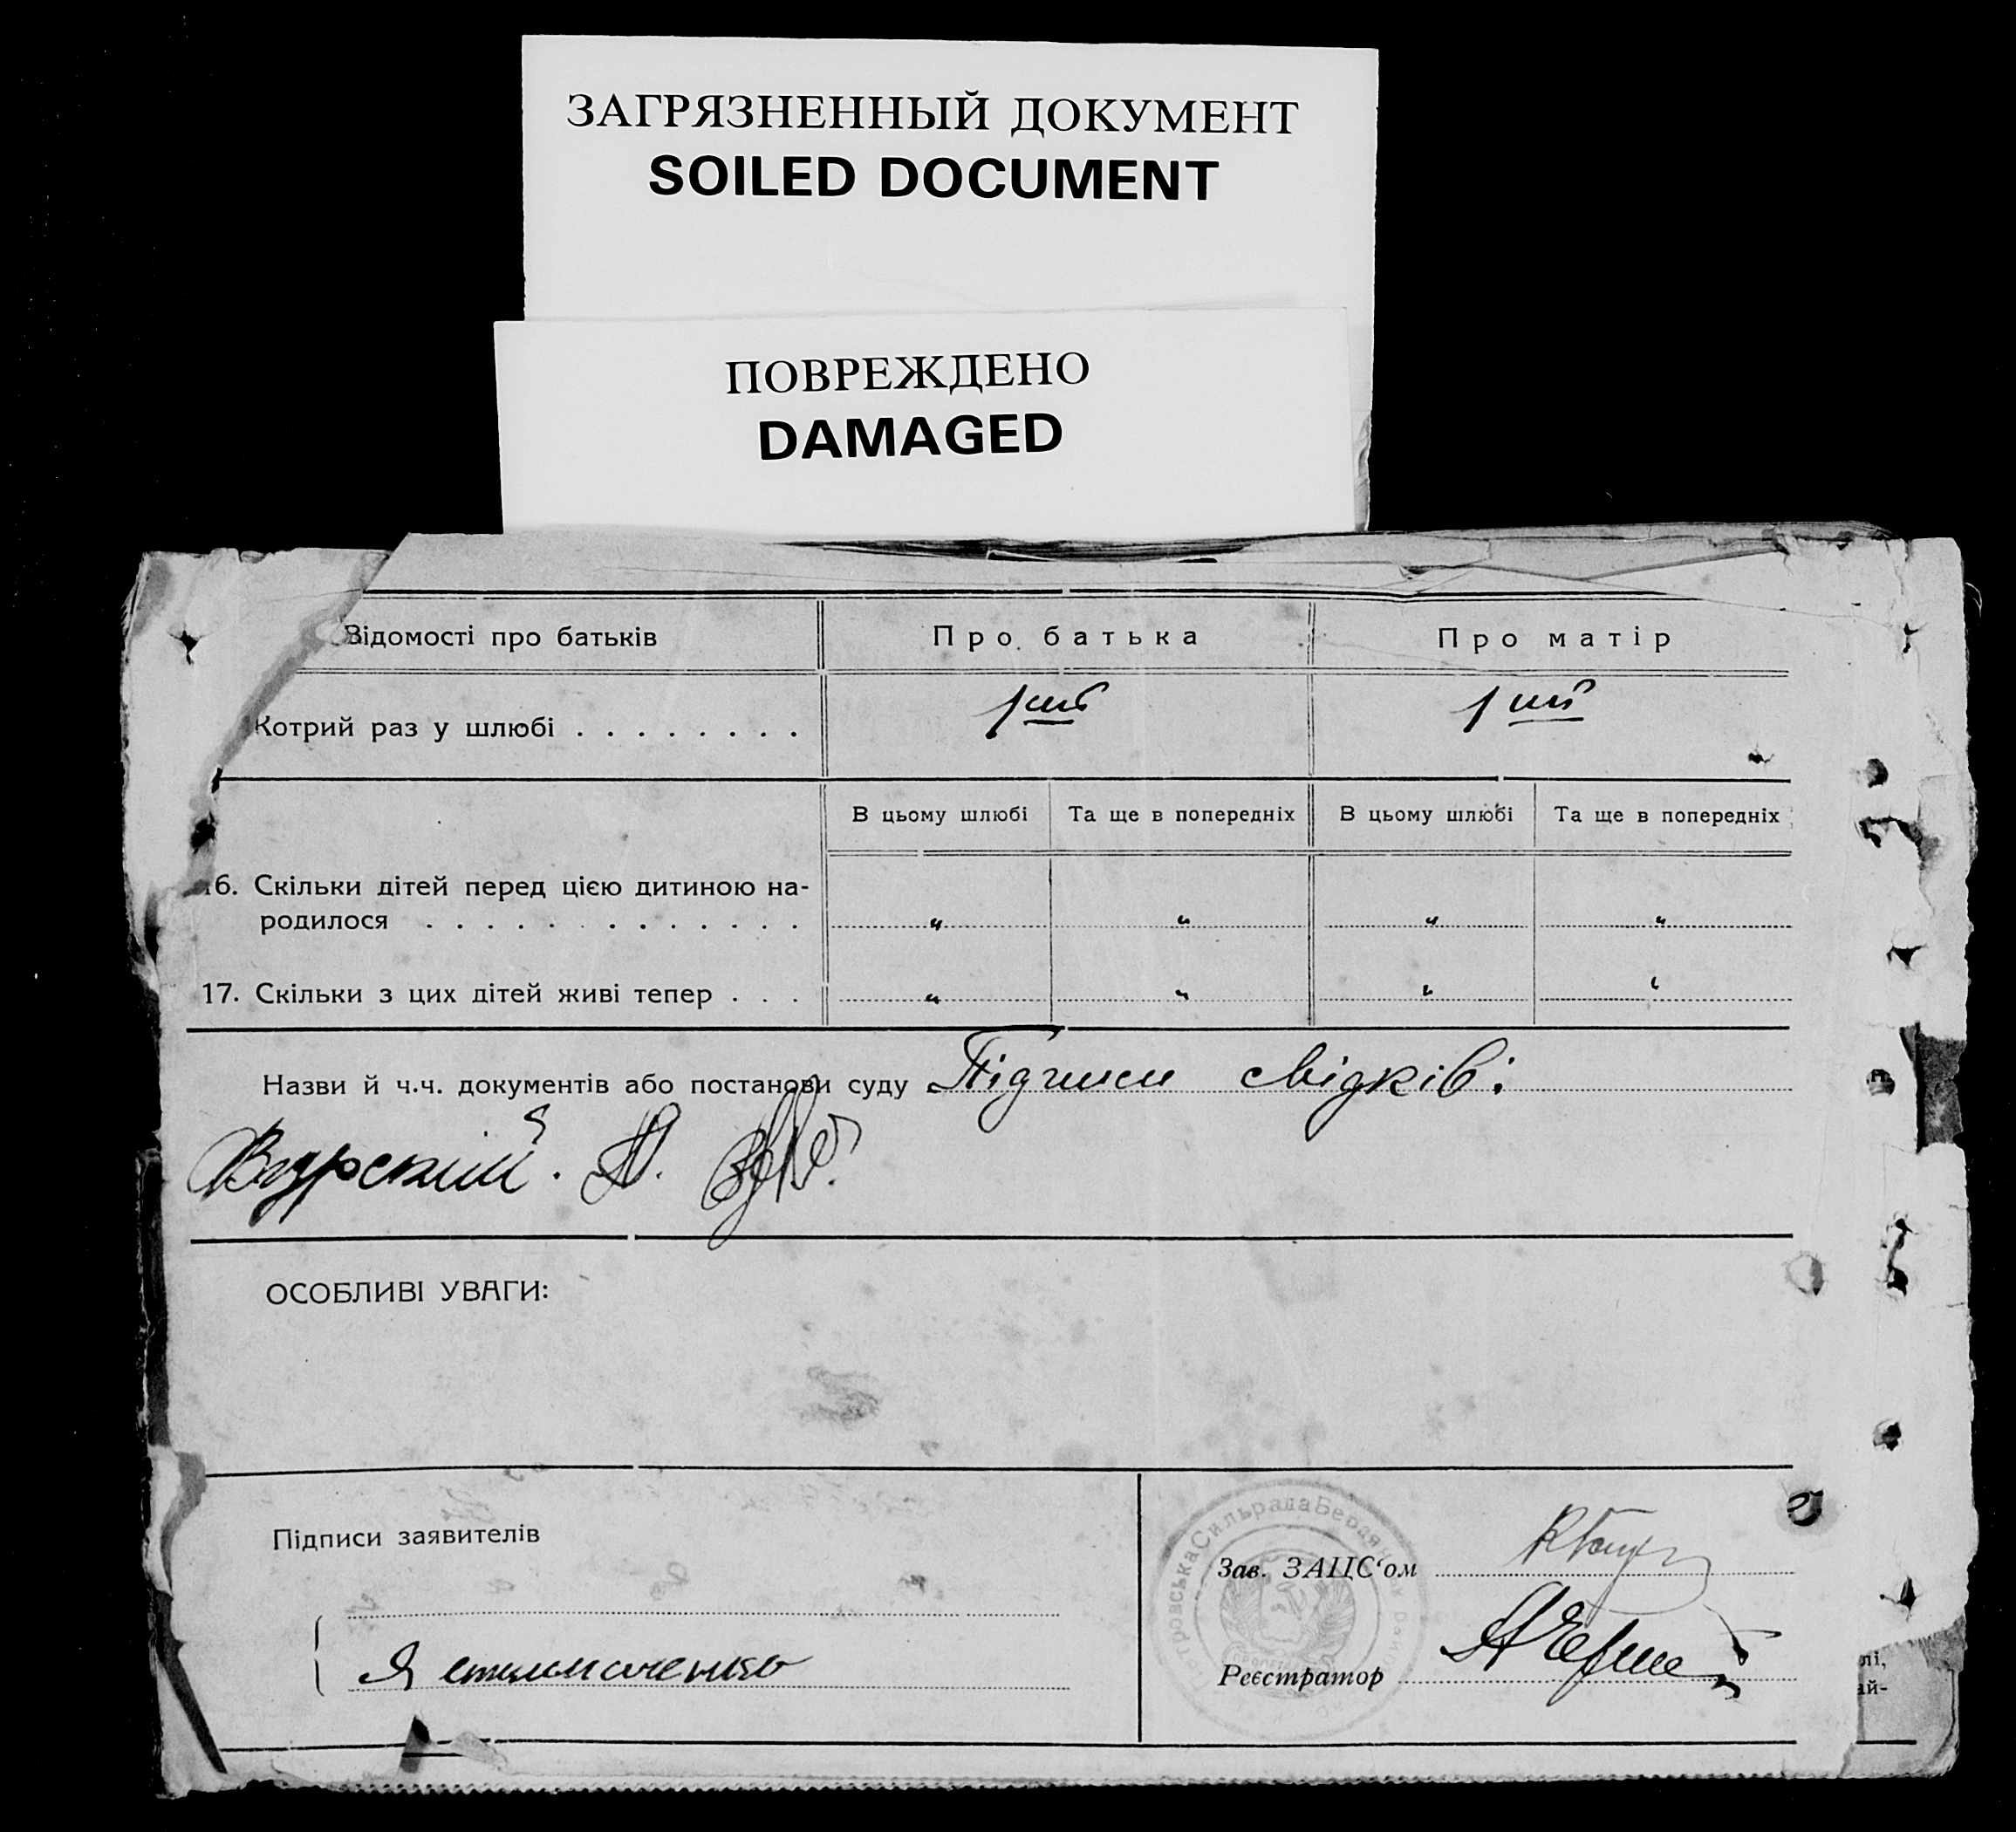 ЗАГРЯЗНЕННЫЙ ДОКУМЕНТ
SOILED DOCUMENT
ПОВРЕЖДЕНО
DAMAGED
Відомості про батьків
Про батька
Про матір
Котрий раз у шлюбі . . . . . . . .
1ший
1ший
В цьому шлюбі
Та ще в попередніх
В цьому шлюбі
Та ще в попередніх
16. Скільки дітей перед цією дитиною на-
родилося . . . . . . . . . . . . .
" " " "
17. Скільки з цих дітей живі тепер . . .
" " " "
Назви й ч.ч. документів або постанови суду Підписи свідків:
ОСОБЛИВІ УВАГИ:
Підписи заявителів
Зав. ЗАЦС‘ом
Реєстратор
тровська Сильрада
лі,
ай-